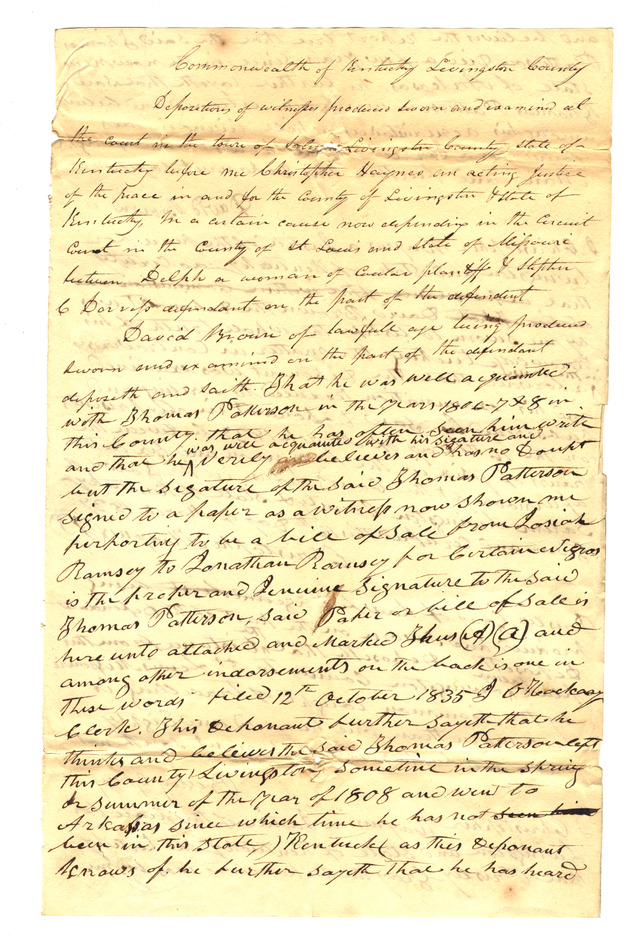 Commonwealth of Kentucky Livingston County
Depositions of witness produced sworn and examined at
the court in the town of Salem Livingston County state of
Kentucky before me Christopher Haynes an acting Justice
of the Peace in and for the County of Livingston & state of
Kentucky, In a certain cause now depending in the Circuit
Court in the County of St Louis and state of Missouri
between Delph a woman of Coular plantiff & Stephen
C Dorriss defendant on the part of the defendent
David Brown of lawfull age being produced
sworn and examined on the part of the defendant
deposeth and saith That he was well acquainted
with Thomas Patterson in the years 1806-7 & 8 in
this County. that he has often seen him write
and that he was well acquainted with his Signature and
verily believes and has no doubt
but the Signature of the said Thomas Patterson
Signed to a paper as a witness now shown me
perporting to be a bill of Sale from Josiah
Ramsey to Jonathan Ramsey for Certain Negros
is the proper and Jenuine Signature to the said
Thomas Patterson, said Paper or bill of Sale is
here unto attached and Marked Thus (A) (a) and
among other indorsements on the back is one in
these words filed 12th October 1835
Clerk. This deponant further Sayeth that he
thinks and believes the said Thomas Patterson left
this County (Livingston) Sometime in the Spring
or summer of the year of 1808 and went to
Arkassas since which time he has not seen him
been in this State, (Kentucke) as this deponant
knows of he further sayeth that he has heard